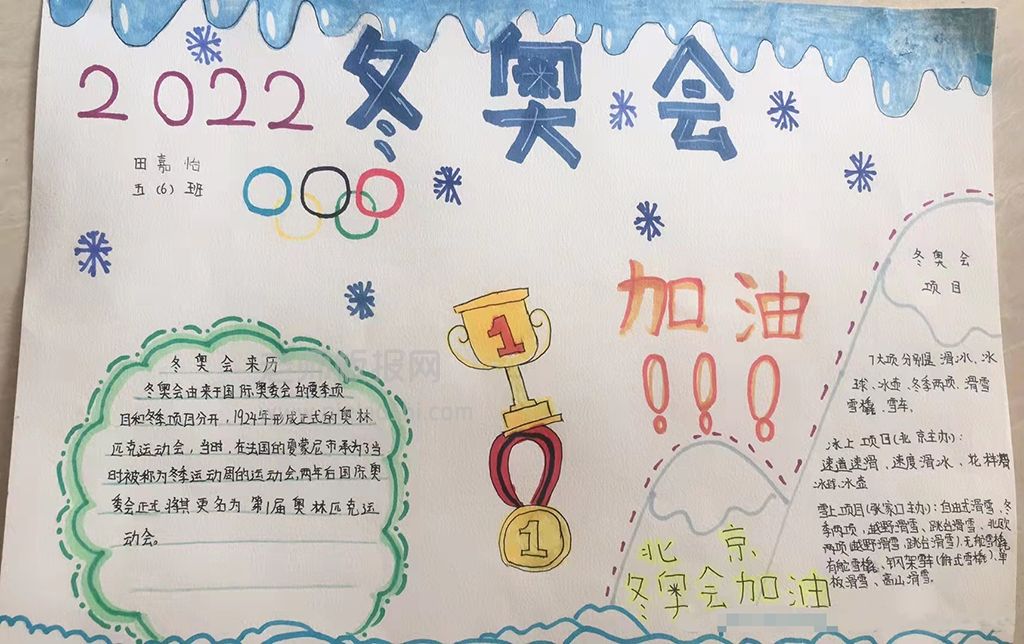 2022 冬奥会
田嘉怡
五(6)班
加油
!!!
1
1
冬奥会来历
冬奥会由来于国际奥委会的夏季项
目和冬季项目分开,1924年形成正式的奥林
匹克运动会,当时,在法国的夏蒙尼市承办了当
时被称为冬季运动周的运动会,两年后国际奥
委会正式将其更名为第1届奥林匹克运
动会。
冬奥会
项目
7大项分别是滑冰、冰
球、冰壶、冬季两项、滑雪
雪橇、雪车。
冰上项目(北京主办):
速道速滑、速度滑冰、花样滑
冰球、冰壶
雪上项目(张家口主办):自由式滑雪、冬
季两项,越野滑雪、跳台滑雪、北欧
两项(越野滑雪、跳台滑雪).无舵雪橇,
有舵雪橇、钢架雪车(俯式雪橇).单
板滑雪、高山滑雪。
北京
冬奥会加油